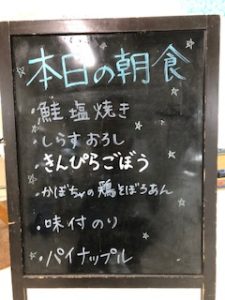 本日の朝食
・鮭塩焼き
・しらすおろし
・きんぴらごぼう
・かぼちゃの鶏そぼろあん
・味付のり
・パイナップル